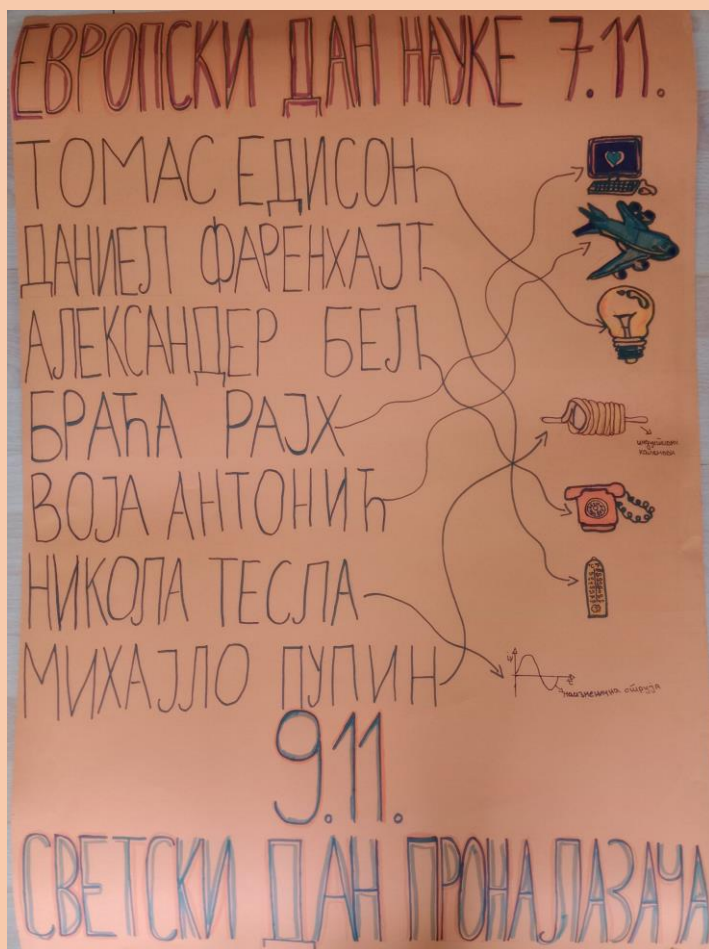 ЕВРОПСКИ ДАН НАУКЕ 7.11.
ТОМАС ЕДИСОН
ДАНИЕЛ ФАРЕНХАЈТ
АЛЕКСАНДЕР БЕЛ
БРАЋА РАЈХ
ВОЈА АНТОНИЋ
НИКОЛА ТЕСЛА
МИХАЈЛО ПУПИН
9.11.
СВЕТСКИ ДАН ПРОНАЛАЗАЧА